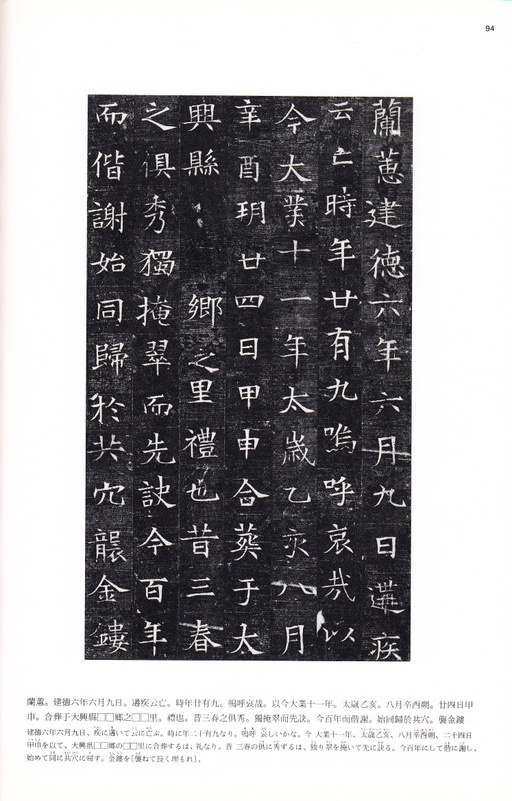 94
蘭蕙建德六年六月九日遘疾
云亡時年廿有九嗚呼哀哉以
今大業十一年太歲乙亥八月
辛酉玥廿四日甲申合葬于大
興縣 鄉之里禮也昔三春
之俱秀獨掩翠而先訣今百年
而偕謝始同歸於共穴襲金鏤
蘭蕙。建德六年六月九日。遘疾云亡。時年廿有九。嗚呼哀哉。以今大業十一年。太歲乙亥。八月辛酉朔。廿四日甲
申。合葬于大興縣□□鄉之□□里。禮也。昔三春之俱秀。獨掩翠而先訣。今百年而偕謝。始同歸於共穴。襲金鏤
建德六年六月九日、疾に遘いて云に亡ぶ。時に年二十有九なり。嗚呼 哀しいかな。今 大業十一年、太歲乙亥、八月辛酉朔、二十四日
甲申を以て、大興県□□鄉の□□里に合葬するは、礼なり。昔 三春の俱に秀ずるは、独り翠を掩いて先に訣る。今百年にして偕に謝し、
始めて同に共穴に帰す。金鏤を〔襲ねて長く埋もれ〕、